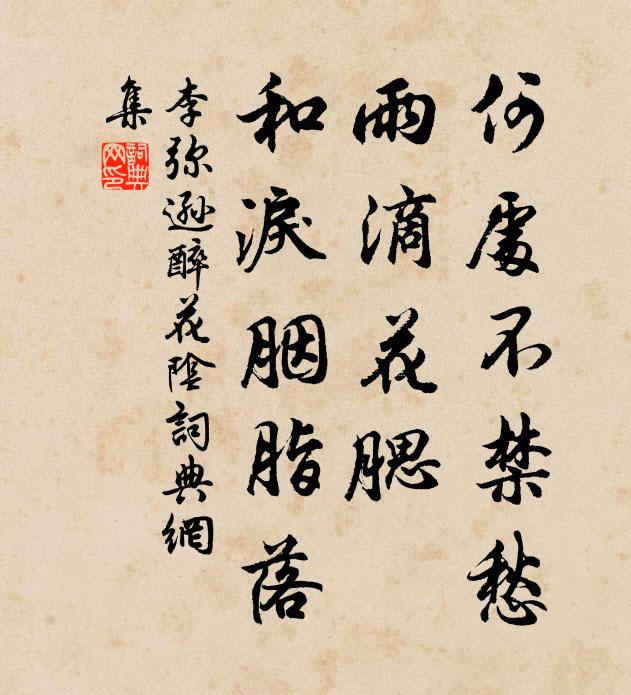 何處不禁愁
雨滴花腮
和淚胭脂落
李弥遜醉花陰詞典網
集
詞典網印